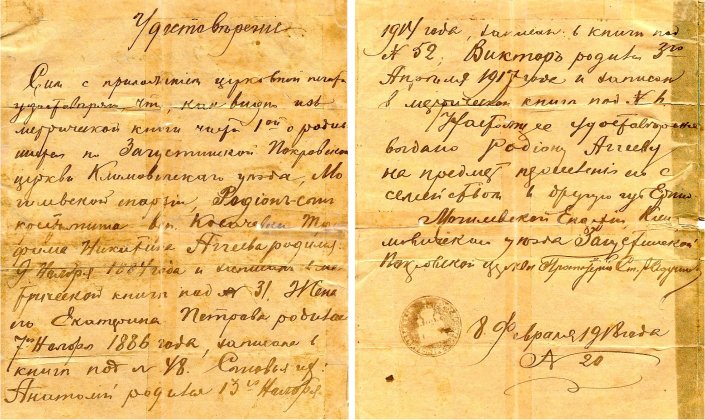 Удостоверение
Сим с приложением церковной печати
удостоверяю что, как видно из
метрической книги часть 1ой о родив
шихся по Загустинской Покровской
церкви Климовичского уезда, Мо
гилевской епархии, Родионъ сын
Никитина Агеева родился
9 Ноября года и записан в ме
трической книге под № 31, Жена
его Екатерина Петрова родилась
7го Ноября 1886 года, записана в
книги под № 48. Сыновья их:
Анатолий родился 13го Ноября
1914 года, записан в книги под
№ 52, Викторъ родился 3го
Апреля 1917 года и записан
в метрической книги под №
Настоящее удостоверение
выдано Родиону Агееву
на предмет переселения его с
семейством в другую губернию
Могилевской Епархии Кли
мовичскаго уезда Загустинской
Покровской церкви Протоиерей
8 Февраля 1918 года
№ 20